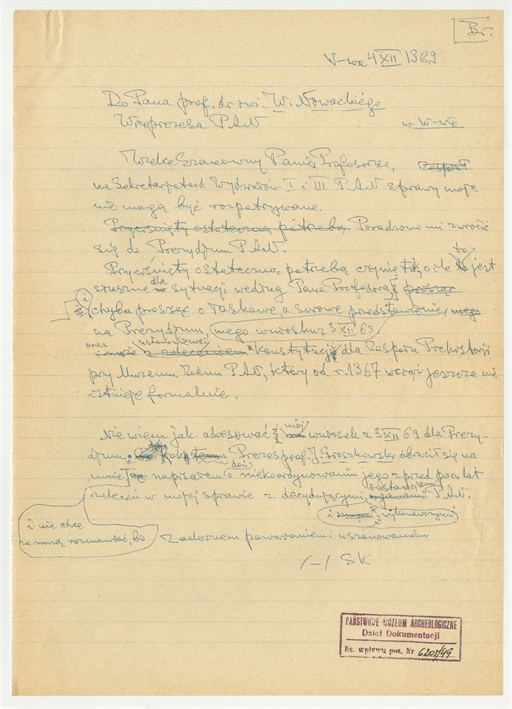 Br.
W-wa 4 XII 1969
Do Pana prof. dr inż. W. Nowackiego
Wiceprezesa PAN
w W-wie
Wielce Szanowny Panie Profesorze,
na Sekretariatach Wydziałów I i III PAN sprawy moje
nie mogą być rozpatrywane.
Przyciśnięty ostateczną potrzebą Poradzono mi zwrócić
się do Prezydium PAN.
Przyciśnięty ostateczną potrzebą czynię to, o ile to jest
słuszne dla sytuacji według Pana Profesora, prosząc
i chyba proszę o łaskawe przedstawienie
na Prezydium, mego wniosku z 3 XII 69
oraz ustanowienie konstytucji dla Zespołu Prehistorii
przy Muzeum Ziemi PAN, który od r. 1967 wciąż jeszcze nie
istnieje formalnie.
Nie wiem jak adresować mój wniosek z 3 XII 69 dla Prezy-
dium. Prezes prof. J. Groszkowski obraził się na
mnie, że napisałem doń o nieskoordynowaniu jego z przed paru lat
zaleceń w mojej sprawie z decydującymi PAN.
i wykonawczymi
i nie chce
ze mną rozmawiać, bo
Z zadośnem poważaniem i uszanowaniem
/-/ SK
PAŃSTWOWE MUZEUM ARCHEOLOGICZNE
Dział Dokumentacji
Ks. wpływu poz. Nr 6201/49